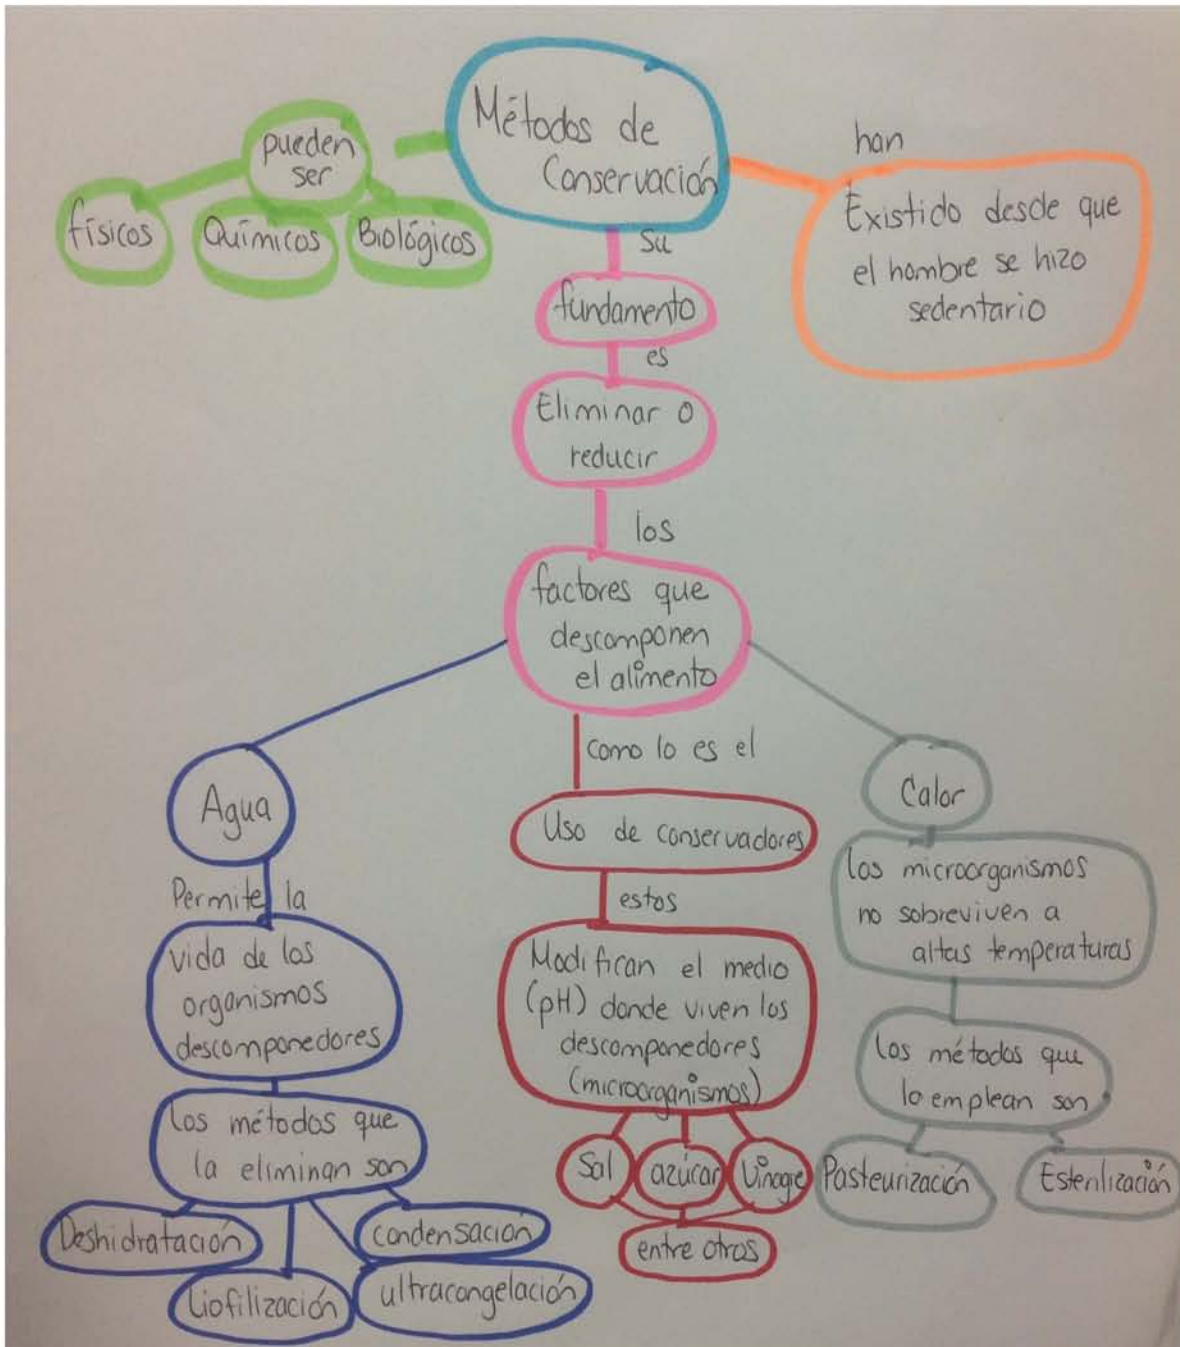 Métodos de
Conservación
pueden
ser
físicos
Químicos
Biológicos
han
Existido desde que
el hombre se hizo
sedentario
su
fundamento
es
Eliminar o
reducir
los
factores que
descomponen
el alimento
Agua
Permite la
vida de los
organismos
descomponedores
los métodos que
la eliminan son
Deshidratación
Liofilización
condensación
ultracongelación
como lo es el
Uso de conservadores
estos
Modifican el medio
(pH) donde viven los
descomponedores
(microorganismos)
Sal
azúcar
Vinagre
entre otros
Calor
los microorganismos
no sobreviven a
altas temperaturas
los métodos que
lo emplean son
Pasteurización
Esterilización